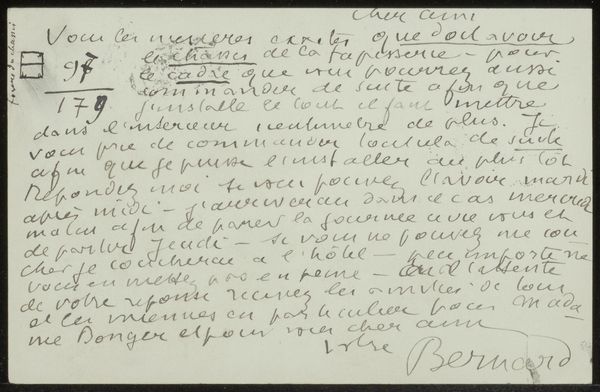 cher ami
Voici les mesures exactes que doit avoir
le chassis de la tapisserie – pour
le cadre que vous pourrez aussi
commander de suite afin que
j'installe le tout il faut mettre
97
179
forme du chassis
dans l'interieur 1 centimetre de plus. Je
vous prie de commander tout cela de suite
afin que je puisse l'installer au plus tôt
Répondez moi si vous pouvez l'avoir mardi
après midi – j'arriverai dans ce cas mercredi
matin afin de passer la journée avec vous et
de partir jeudi – si vous ne pouvez me cou
cher je coucherai à l'hôtel – peu importe ne
vous en mettez pas en peine – dans l'attente
de votre reponse recevez les amities de tous
et les miennes en particulier pour Mada
me Bonger et pour vous cher ami
votre
Bernard